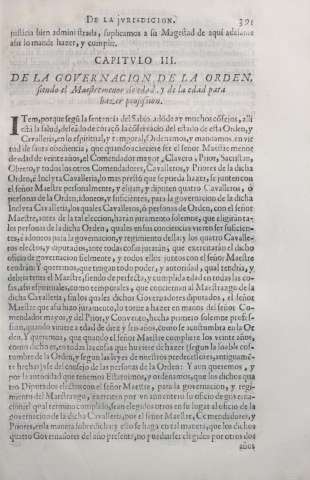 DE LA JVRISDICION. 391
justicia bien administrada, suplicamos a su Magestad de aqui adelante
assi lo mande hazer, y cumplir.
CAPITVLO III.
DE LA GOVERNACION DE LA ORDEN,
siendo el Maestre menor de edad, y de la edad para
hazer profession.
ITem, porque segũ la sentencia del Sabio, adõde ay muchos cõsejos, alli
està la salud, deseãdo de coraçõ la cõservaciõ del estado de esta Orden, y
Cavalleria, en lo espiritual, y temporal, Ordenamos, y mandamos, en vir
tud de santa obediencia, que quando acaeciere ser el señor Maestre menor
de edad de veinte años, el Comendador mayor, Clavero, Prior, Sacristan,
Obrero, y todos los otros Comendadores, Cavalleros, y Priores de la dicha
Orden, è Inclyta Cavalleria, lo mas presto que se pueda hazer, se junten con
el señor Maestre personalmente, y elijan, y diputen quatro Cavalleros, ò
personas de la Orden, idoneos, y suficientes, para la governacion de la dicha
Inclyta Cavalleria, los quales Cavalleros, ò personas de Orden, con el señor
Maestre, antes de la tal eleccion, haràn juramento solemne, que eligiràn ta-
les personas de la dicha Orden, quales en sus conciencias vieren ser suficien-
tes, è idoneos para la governacion, y regimiento della: y los quatro Cavalle
ros electos, y diputados, ante todas cosas juraràn, que exercitaràn el dicho
oficio de governacion fielmente, y todos ellos juntos con el señor Maestre
tendràn Y queremos, que tengan todo poder, y autoridad, qual tendria, y
deberia tener el Maestre, siendo de perfecta, y cumplida edad en todas las co-
sas, assi espirituales, como temporales, que conciernan al Maestrazgo de la
dicha Cavalleria, sin los quales dichos Governadores diputados, el señor
Maestre que assi haga juramento, lo torne a hazer en manos del señor Co-
mendador mayor, y del Prior, y Convento, hecha primero solemne profes-
sion, quando viniere a edad de diez y seis años, como se acostumbra en la Or
den. Y queremos, que quando el señor Maestre cumpliere los veinte años,
como dicho es, en todas las cosas que huviere de hazer (segun la loable cos-
tumbre de la Orden, y segun las leyes de nuestros predecessores, antiguamẽ-
te hechas) vse del consejo de las personas de la Orden: Y aun queremos, y
por la autoridad que tenemos Estatuimos, y ordenamos, que los dichos qua
tro Diputados electos con el señor Maestre, para la governacion, y regi-
miento del Maestrazgo, exerciten por vn año entero su oficio de governa-
cion: el qual termino cumplido, sean elegidos otros en su lugar al oficio de la
governacion de la dicha Cavalleria, por el señor Maestre, Comendadores, y
Priores, en la manera sobredicha: y esto se haga en tal manera, que los dichos
quatro Governadores del año presente, no puedan ser elegidos por otros dos
años